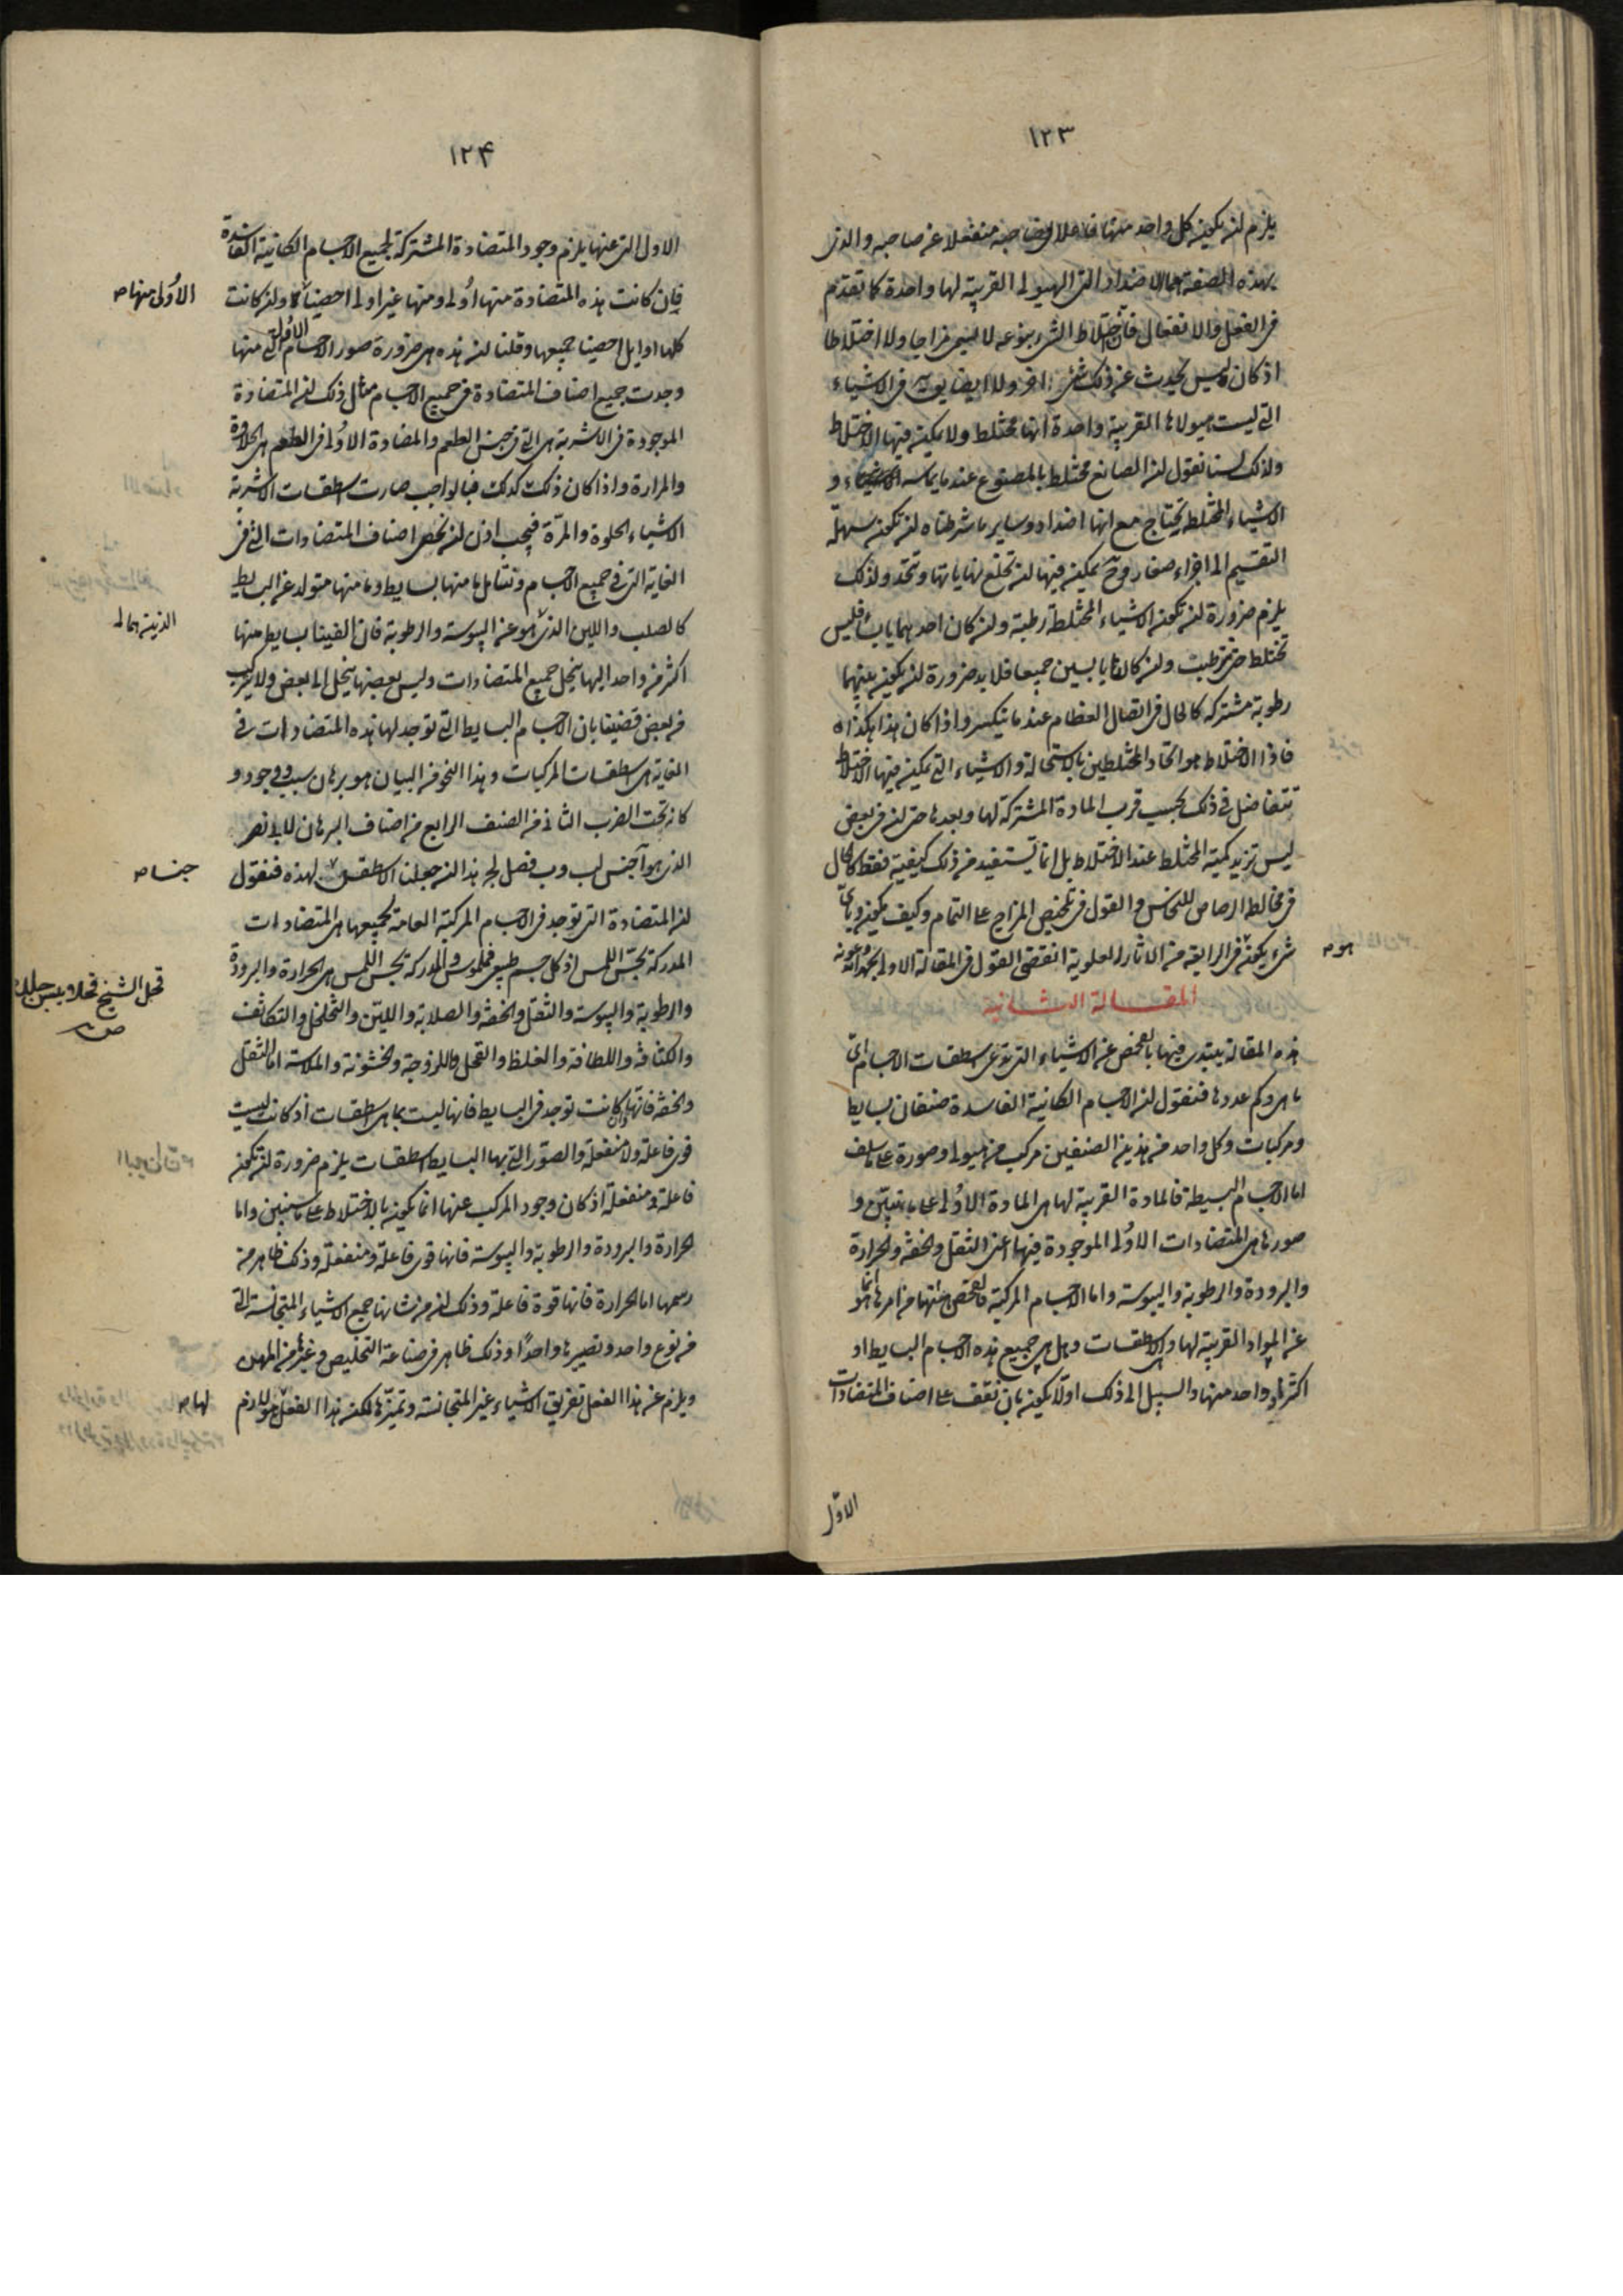 ١٢٣
يلزم ان يكون كل واحد منهما فاعلا لصاحبه منفعلا عن صاحبه والذى
بهذه الصفة هما الاضداد التى الهيولى القريبة لها واحدة كما تقدم
فى الفعل والانفعال فأن اختلاط الشىء بنوعه لا يسمى مزاجا ولا اختلاطا
اذ كان ليس يحدث عن ذلك شىء اخر ولا ايضا يوجد فى الاشياء
التى ليست هيولاها القريبة واحدة انها تختلط ولا يمكن فيها الاختلاط
ولذلك لسنا نقول ان الصانع مختلط بالمصنوع عندما يماسه و
الاشياء المختلطة يحتاج مع انها اضداد وساير ما شرطناه ان تكون سهلة
التقسيم الى اجزاء صغار وح يمكن فيها ان تخلع نهاياتها وتتحد ولذلك
يلزم ضرورة ان تكون الاشياء المختلطة رطبة وان كان احدهما يابسا فليس
تختلط حتى ترطبت وان كانا يابسين جميعا فلا بد ضرورة ان يكون بينهما
رطوبة مشتركة كالحال فى اتصال العظام عندما تنكسر واذا كان هذا هكذا
فاذا الاختلاط هو اتحاد المختلطين بالاستحالة والاشياء التى يمكن فيها الاختلاط
تتفاضل فى ذلك بحسب قرب المادة المشتركة لها وبعدها حتى ان فى بعض
ليس تزيد كمية المختلط عند الاختلاط بل انما تستفيد من ذلك كيفية فقط كالحال
فى مخالطة الرصاص للنحاس والقول فى تلخيص المزاج على التمام وكيف يكون وباى
شىء يكون هو فى الرابعة من الاثار العلوية انقضى القول فى المقالة الاولى بحمد الله وعونه
هو ص
المقالة الثانية
هذه المقالة يبتدى فيها بالفحص عن الاشياء التى تدعى اسطقسات الاجسام اى
ما هى وكم عددها فنقول ان الاجسام الكائنة الفاسدة صنفان بسايط
ومركبات وكل واحد من هذين الصنفين مركب من هيولى وصورة على ما سلف
اما الاجسام البسيطة فالمادة القريبة لها هى المادة الاولى على ما تبين و
صورها هى المتضادات الاولى الموجودة فيها اعنى الثقل والخفة والحرارة
والبرودة والرطوبة واليبوسة واما الاجسام المركبة فالفحص منها من امرها انما هو
عن المواد القريبة لها وهى الاسطقسات وهل هى جميع هذه الاجسام البسايط او
اكثر من واحد منها والسبيل الى ذلك اولا يكون بان نقف على اصناف المتضادات
الاول
١٢۴
الاول التى عنها يلزم وجود المتضادة المشتركة لجميع الاجسام الكائنة الفاسدة
فإن كانت هذه المتضادة منها أولى ومنها غير اولى احصينا ولان كانت
الأولى منها ص
كلها اوايل احصينا جميعها وقلنا ان هذه هى ضرورة صور الاجسام الأول التى منها
وجدت جميع اصناف المتضادة فى جميع الاجسام مثال ذلك ان المتضادة
الموجودة فى الاشربة هى التى فى جنس الطعم والمضادة الاولى فى الطعم هى الحلاوة
والمرارة واذا كان ذلك كذلك فبالواجب صارت اسطقسات الاشربة
الاشياء الحلوة والمرّة فيجب اذن ان نحصى اصناف المتضادات التى فى
الغاية التى فى جميع الاجسام ونتامل ما منها بسايط وما منها متولد عن البسايط
كالصلب واللين الذى هو عن اليبوسة والرطوبة فان الفينا بسايط منها
اكثر من واحد اليها ينحل جميع المتضادات وليس بعضها ينحل الى بعض ولا يتركب
من بعض قضينا بان الاجسام البسايط التى توجد لها هذه المتضادات فى
الغاية هى اسطقسات المركبات وهذا النحو من البيان هو برهان سبب ووجود و
كانه تحت الضرب الثانى من الصنف الرابع من اصناف البراهين لابى نصر
الذى هو آجنس لب وب فصل لج هذا ان جعلنا الاسطقس لهذه فنقول
جنسا ص
ان المتضادة التى توجد فى الاجسام المركبة العامة لجميعها هى المتضادات
المدركة بحس اللمس اذ كل جسم طبيعى فملموس والمدركة بحس اللمس هى الحرارة والبرودة
والرطوبة واليبوسة والثقل والخفة والصلابة واللين والتخلخل والتكاثف
قحل الشيخ قحلا يبس جلده
ص
والكثافة واللطافة والغلظ والقحل واللزوجة والخشونة والملاسة اما الثقل
والخفة فانهما وان كانت توجد فى البسايط فانها ليست بما هى اسطقسات اذ كانت ليست
قوى فاعلة ولا منفعلة والصور التى بها البسايط اسطقسات يلزم ضرورة ان تكون
فاعلة ومنفعلة اذ كان وجود المركب عنها انما يكون بالاختلاط على ما سنبين واما
الحرارة والبرودة والرطوبة واليبوسة فانها قوى فاعلة ومنفعلة وذلك ظاهر من
رسمها اما الحرارة فانها قوة فاعلة وذلك ان من شانها جمع الاشياء المتجانسة التى
من نوع واحد وتصيرها واحدا وذلك ظاهر فى صناعة التخليص وغيرها من المهن
ويلزم عن هذا الفعل تفريق الاشياء غير المتجانسة وتميزها لكن هذا الفعل هو لازم
لها ص